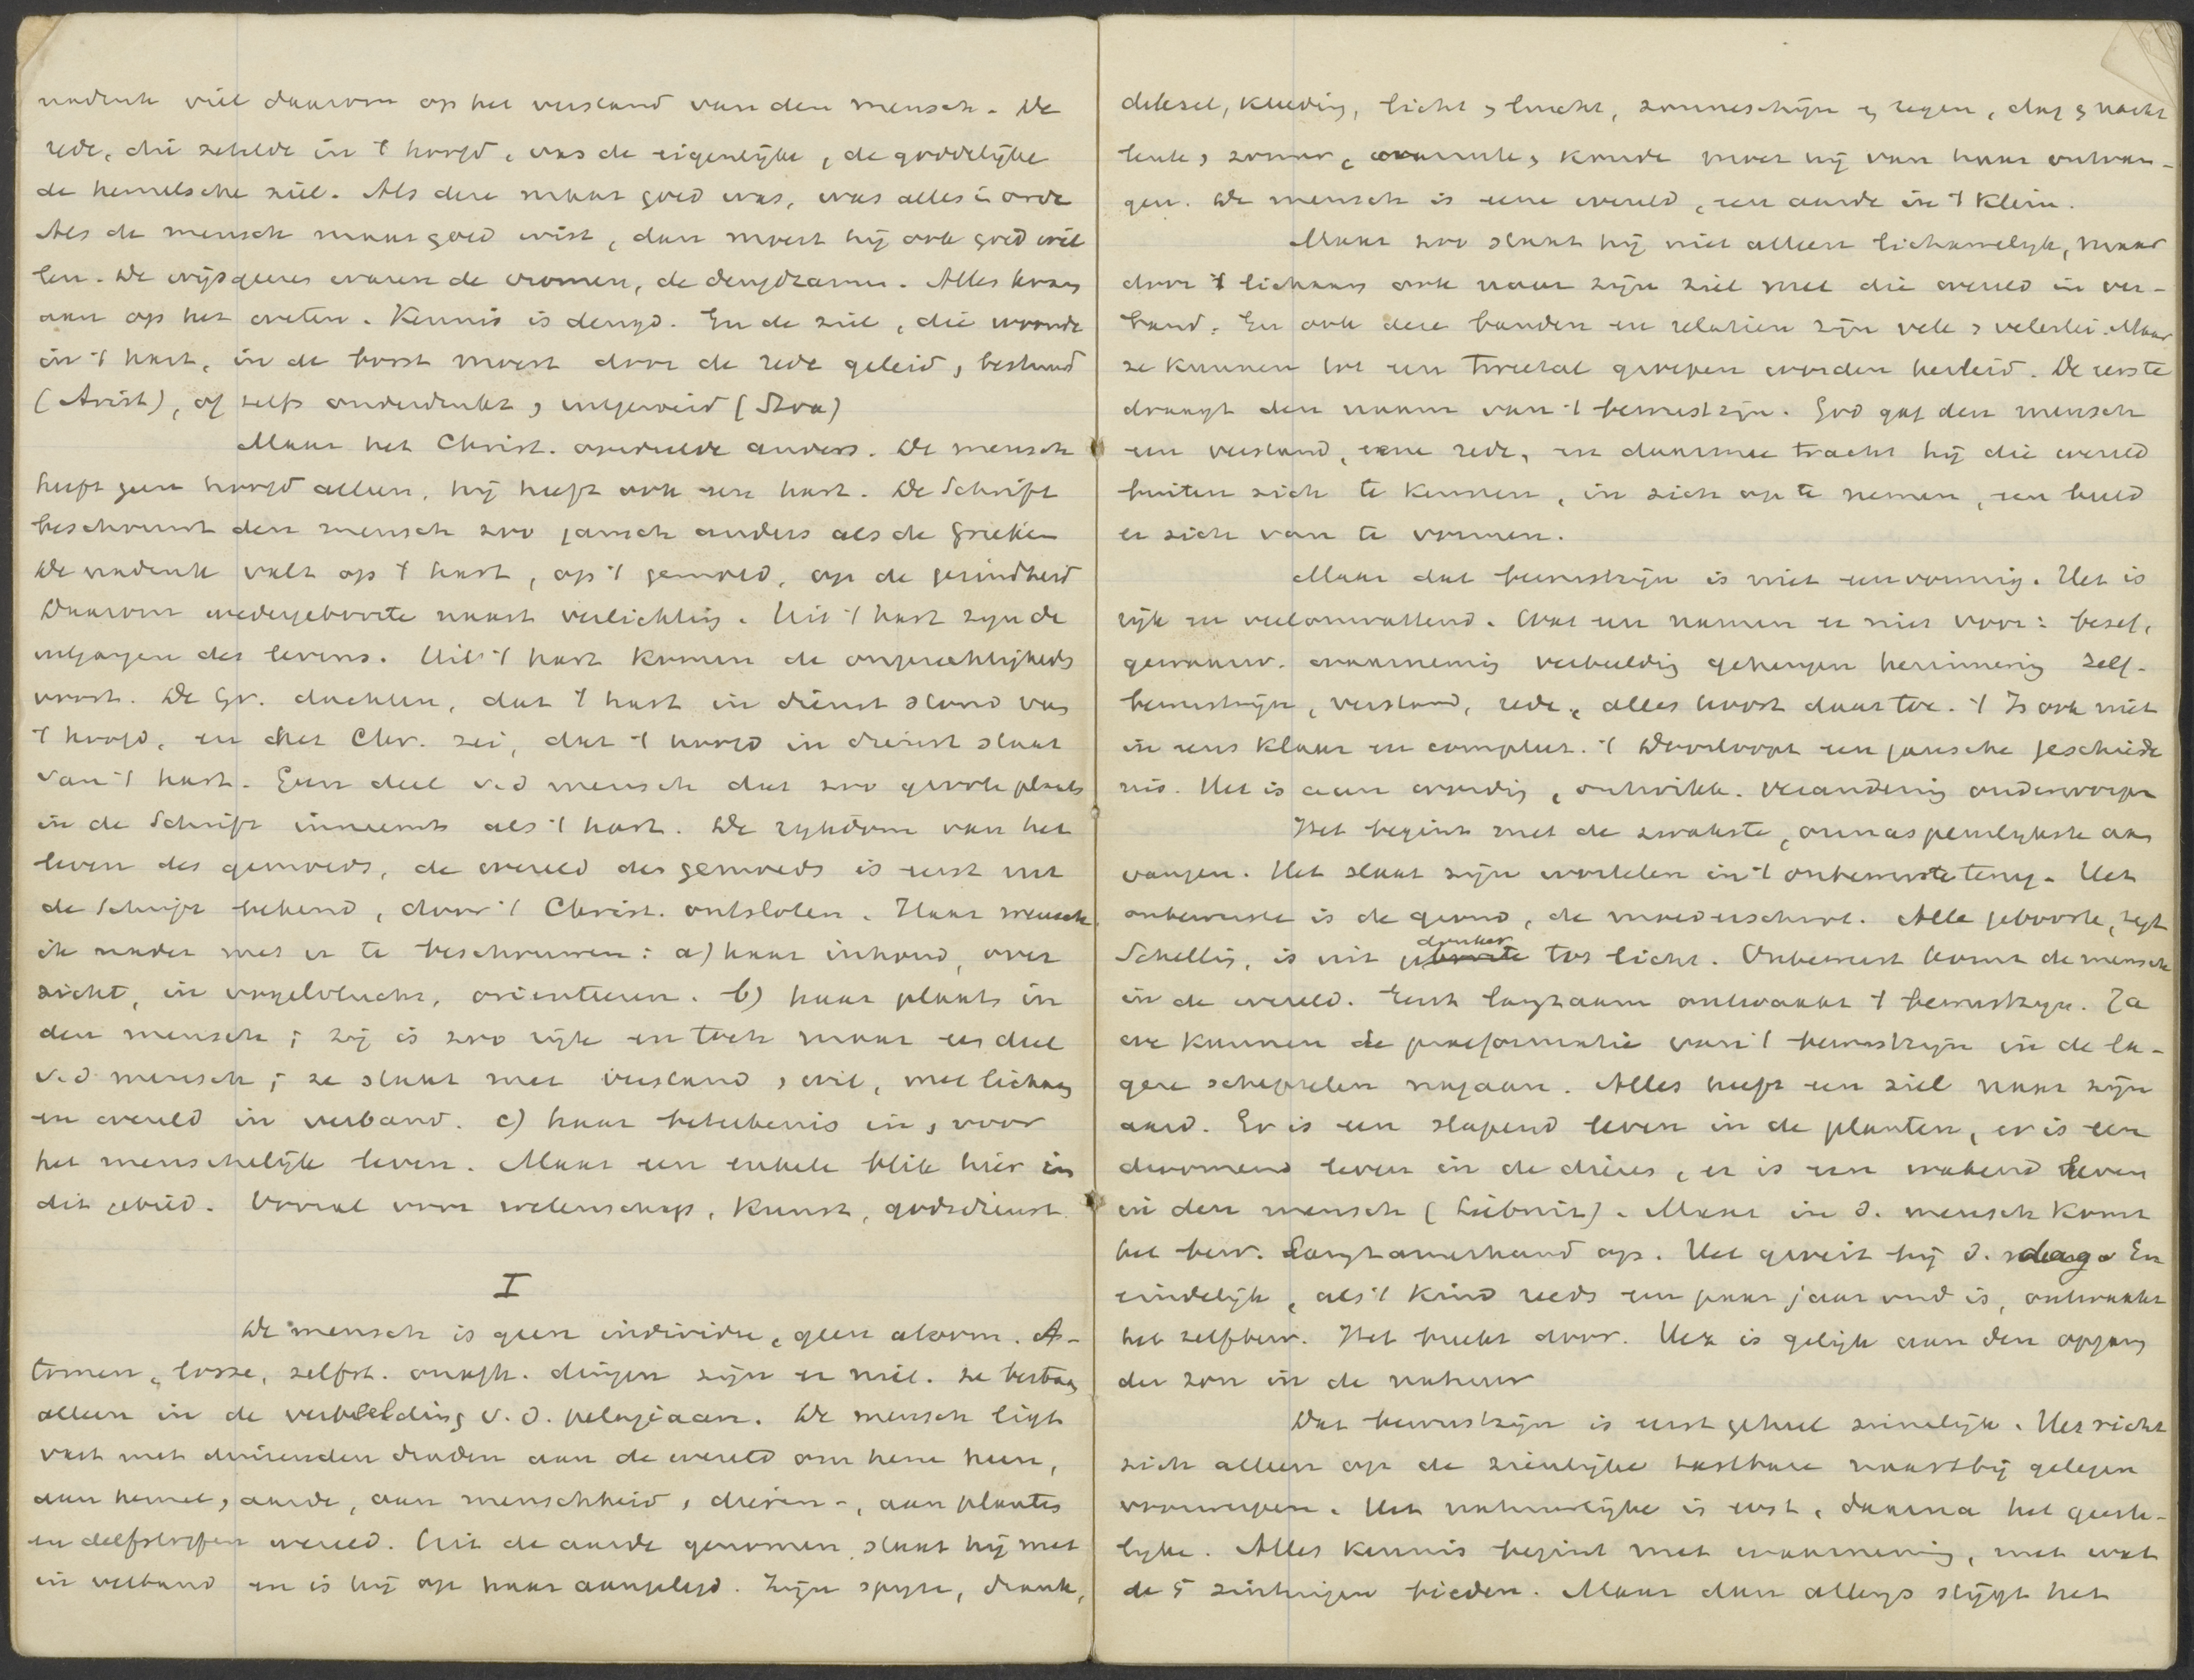 nadruk viel daarom op het verstand van den mensch. De
rede, die zetelde in 't hoofd, was de eigenlijke, de goddelijke
de hemelsche ziel. Als deze maar goed was, was alles in orde
Als de mensch maar goed wist, dan moest hij ook goed wil
len. De wijsgeeren waren de vromen, de deugdzamen. Alles kwam
aan op het weten. Kennis is deugd. En de ziel, die woonde
in 't hart, in de borst moest door de rede geleid, bestuurd
(Arist), of zelfs onderdrukt, uitgeroeid (Stoa)
Maar het Christ. oordeelde anders. De mensch
heeft geen hoofd alleen, hij heeft ook een hart. De Schrift
beschouwt den mensch zoo gansch anders als de Grieken
De nadruk valt op 't hart, op 't gemoed, op de gezindheid
Daarom wedergeboorte naast verlichting. Uit 't hart zijn de
uitgangen des levens. Uit 't hart komen de ongerechtigheds
voort. De Gr. dachten, dat 't hart in dienst stond van
't hoofd, en het Chr. zei, dat 't hoofd in dienst staat
van 't hart. Geen deel v.d mensch dat zoo groote plaats
in de Schrift inneemt als 't hart. De rijkdom van het
leven des gemoeds, de wereld des gemoeds is eerst uit
de Schrift bekend, door 't Christ. ontsloten. Haar wensch
ik nader met u te beschouwen: a) haar inhoud, over
zicht, in vogelvlucht, orienteeren. b) haar plaats in
den mensch; zij is zoo rijk en toch maar een deel
v.d mensch; ze staat met verstand, wil, met lichaam
en wereld in verband. c) haar beteekenis in, voor
het menschelijk leven. Maar een enkele blik hier in
dit gebied. Vooral voor wetenschap, kunst, godsdienst
I
De mensch is geen individu, geen atoom. A-
tomen, losse, zelfst. onafh. dingen zijn er niet. ze bestaan
alleen in de verbeelding v. d. pelagiaan. De mensch ligt
vast met duizenden draden aan de wereld om hem heen,
aan hemel, aarde, aan menschheid, dieren-, aan planten
en delfstoffen wereld. Uit de aarde genomen staat hij met
in verband en is hij op haar aangelegd. Zijn spijze, drank,
deksel, kleeding, licht, lucht, zonneschijn en regen, dag, nacht
lente, zomer, warmte, koude moet hij van haar ontvan-
gen. De mensch is eene wereld, een aarde in 't klein.
Maar zoo staat hij niet alleen lichamelijk, maar
door 't lichaam ook naar zijn ziel met die wereld in ver-
band. En ook deze banden en relatien zijn vele, velerlei. Maar
ze kunnen tot een tweetal groepen worden herleid. De eerste
draagt den naam van 't bewustzijn. God gaf den mensch
een verstand, eene rede, en daarmee tracht hij die wereld
buiten zich te kennen, in zich op te nemen, een beeld
er zich van te vormen.
Maar dat bewustzijn is niet eenvormig. Het is
rijk en veelomvattend. Wat een namen er niet voor: besef,
gewaarw. waarneming verbeelding geheugen herinnering zelf-
bewustzijn, verstand, rede, alles hoort daartoe. 't Is ook niet
in eens klaar en compleet. 't Doorloopt een gansche geschiede
nis. Het is aan wording, ontwikk. verandering onderworpen
Het begint met de zwakste, onnaspeurlijkste aan
vangen. Het slaat zijn wortelen in 't onbewuste terug. Het
onbewuste is de grond, de moederschoot. Alle geboorte, zegt
Schelling, is uit donker tot licht. Onbewust komt de mensch
in de wereld. Eerst langzaam ontwaakt 't bewustzijn. Ja
we kunnen de praeformatie van 't bewustzijn in de la-
gere schepselen nagaan. Alles heeft een ziel naar zijn
aard. Er is een slapend leven in de planten, er is een
droomend leven in de dieren, er is een wakend leven
in den mensch (Leibnitz). Maar in d. mensch komt
het bew. langzamerhand op. Het groeit bij d. dag. En
eindelijk, als 't kind reeds een paar jaar oud is, ontwaakt
het zelfbew. Het breekt door. Het is gelijk aan den opgang
der zon in de natuur
Dat bewustzijn is eerst geheel zinnelijk. Het richt
zich alleen op de zienlijke tastbare naastbij gelegen
voorwerpen. Het natuurlijke is eerst, daarna het geeste-
lijke. Alles kennis begint met waarneming, met wat
de 5 zintuigen bieden. Maar dan allengs stijgt het